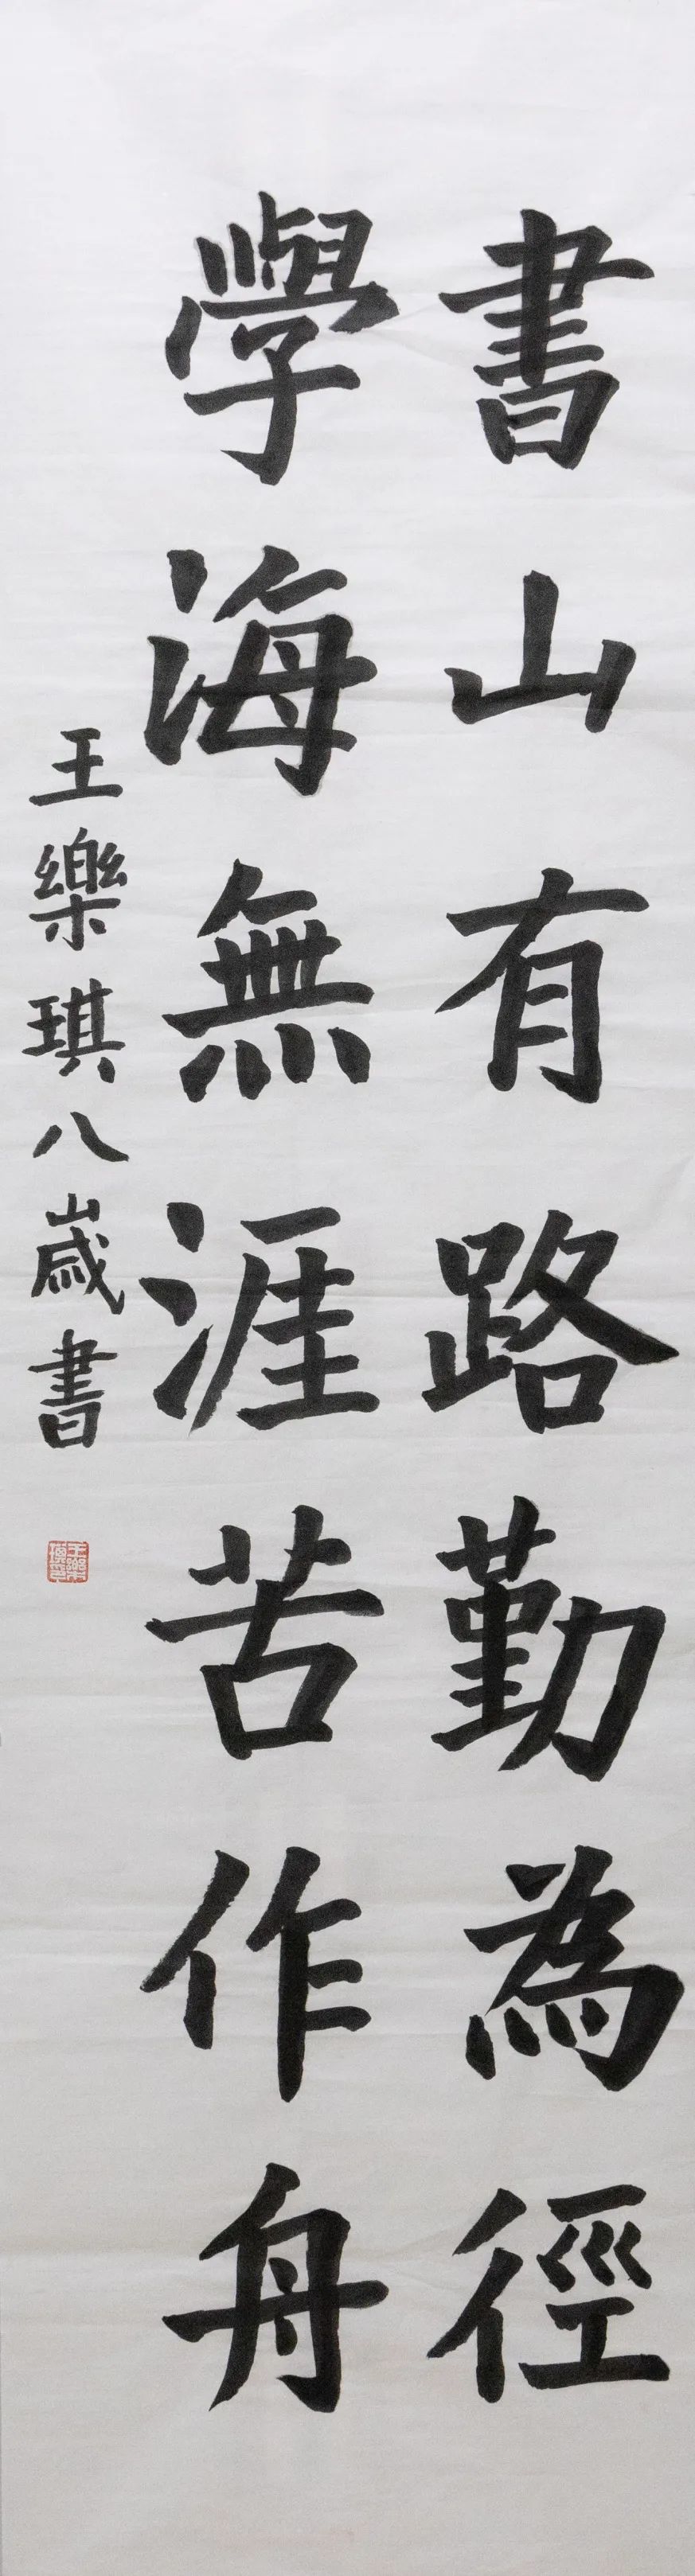 書山有路勤為徑
學海無涯苦作舟
王樂琪八歲書